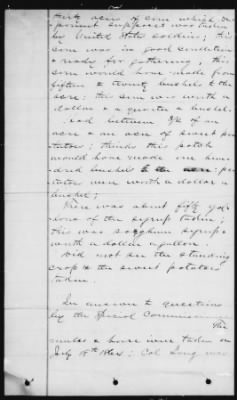 thirty acres of corn which de-
ponent supposes was taken
by United States soldiers; this
corn was in good condition
& ready for gathering; this
corn would have made from
fifteen to twenty bushels to the
acre; the corn was worth a
dollar & a quarter a bushel.
Had between 3/4 of an
acre & an acre of sweet po-
tatoes; thinks this patch
would have made one hun-
dred bushels; po-
tatoes were worth a dollar a
bushel;
There was about fifty gal-
lons of the syrup taken;
this was sorghum syrup &
worth a dollar a gallon.
Did not see the standing
crop & the sweet potatoes
taken.
In answer to questions
by the Special Commissioner
The
mules & horse were taken on
July 18th 1864; Col Long was